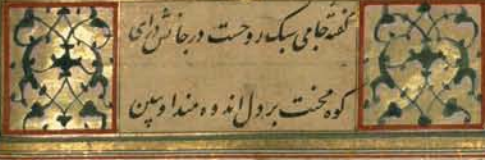 تحفهٔ جامی سبک روحست در جانش درآی
کوه محنت بر دل اندوه مند او مبین